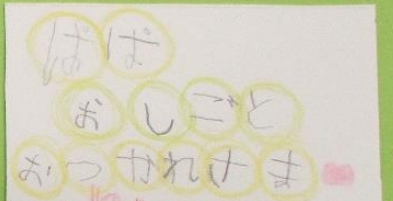 ぱぱ
おしごと
おつかれさま